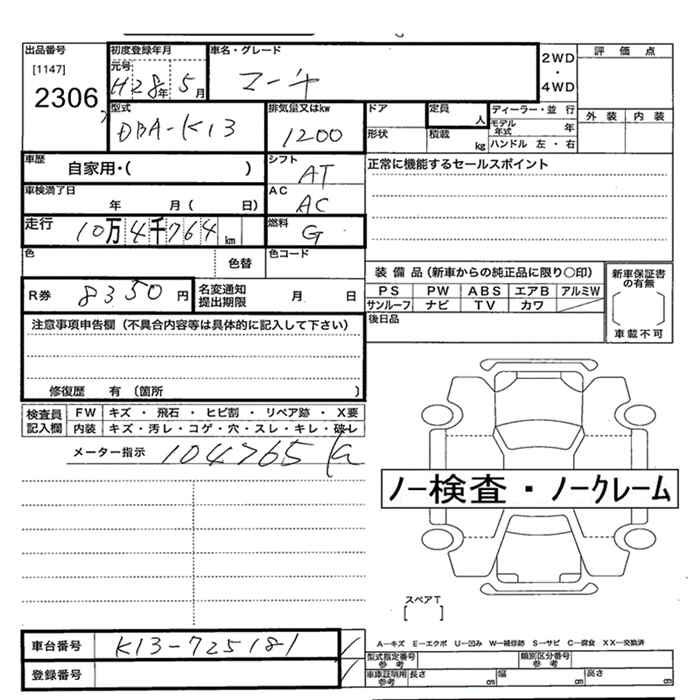 出品番号 初度登録年月 車名・グレード 評価点
[1147] 元号 2WD
2306 H28年 5月 マーチ ・
4WD
型式 排気量又はkw ドア 定員 人 ディーラー・並行 外装 内装
DBA-K13 1200 形状 積載 kg モデル年式 年
ハンドル 左・右
車歴 自家用・( ) シフト AT 正常に機能するセールスポイント
車検満了日 年 月( 日) AC AC
走行 10万4千764km 燃料 G
色 色替 色コード
装備品(新車からの純正品に限り○印) 新車保証書の有無
R券 8350円 名変通知提出期限 月 日 PS PW ABS エアB アルミW
サンルーフ ナビ TV カワ 車載不可
注意事項申告欄(不具合内容等は具体的に記入して下さい) 後日品
修復歴 有(箇所 )
検査員 FW キズ・飛石・ヒビ割・リペア跡・X要
記入欄 内装 キズ・汚レ・コゲ・穴・スレ・キレ・破レ
メーター指示 104765
ノー検査・ノークレーム
スペアT
[ ]
車台番号 K13-725181 A…キズ E…エクボ U…凹み W…補修跡 S…サビ C…腐食 XX…交換済
型式指定番号 参考 類別区分番号 参考
登録番号 車庫証明用 参考 長さ cm 幅 cm 高さ cm